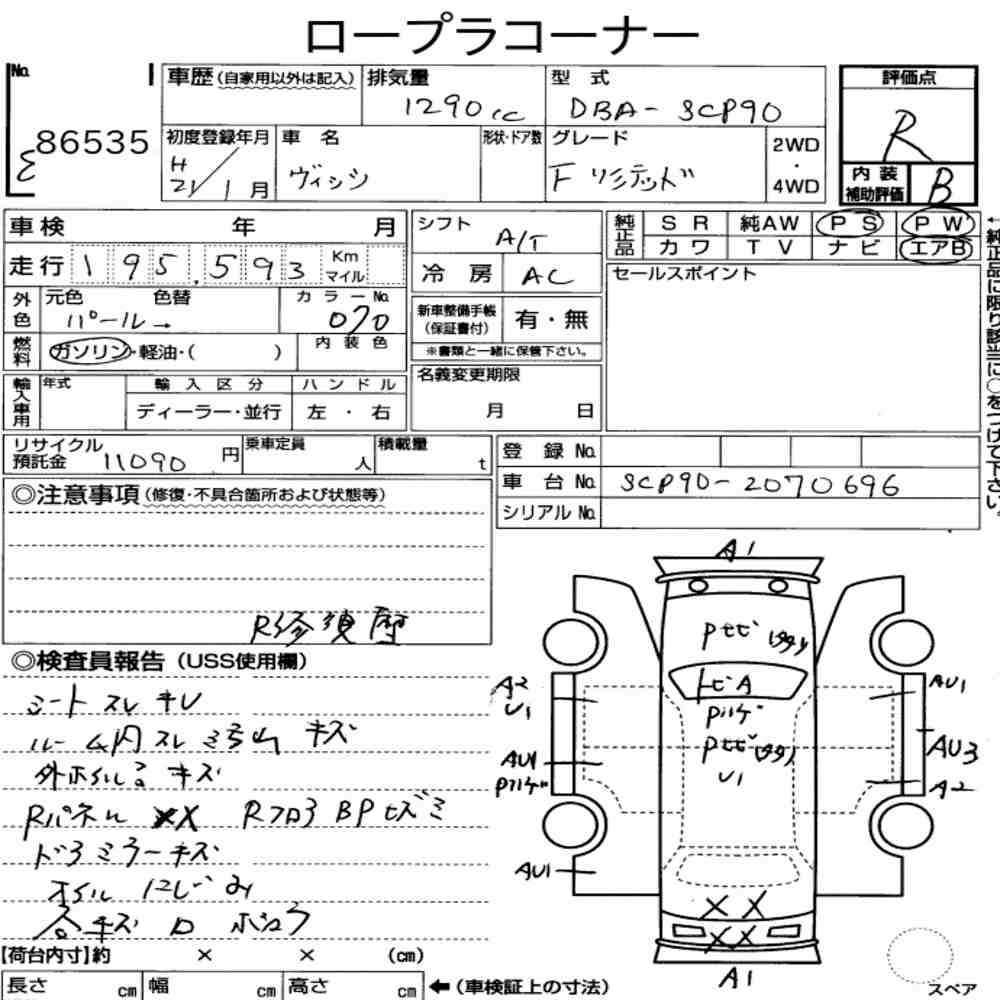 ロープラコーナー
No. 86535
車歴 (自家用以外は記入) 排気量 1290cc 型式 DBA-SCP90 評価点 R
初度登録年月 H21/1月 車名 ヴィッツ 形状・ドア数 グレード Fリミテッド 2WD・4WD 内装補助評価 B
車検 年 月 シフト A/T 純正品 SR 純AW PS PW
走行 195,593 Km マイル 冷房 AC カワ TV ナビ エアB
←純正品に限り該当に○をつけて下さい。
外色 元色 色替 パール→ カラーNo. 070 新車整備手帳(保証書付) 有・無 セールスポイント
燃料 ガソリン・軽油・( ) 内装色 ※書類と一緒に保管下さい。
輸入車用 年式 輸入区分 ハンドル 名義変更期限
ディーラー・並行 左・右 月 日
リサイクル預託金 11090円 乗車定員 人 積載量 t 登録No.
車台No. SCP90-2070696
シリアルNo.
◎注意事項 (修復・不具合箇所および状態等)
R修須歴
◎検査員報告 (USS使用欄)
シート スレ キレ
ルーム内スレ ミ キズ
外ホイル キズ
Rパネル XX Rフロア BPヒズミ
ドアミラーキズ
オイルにじみ
キズ ロ
A1
Pセビ
トビA
Pハゲ
Pセビ
U1
A2
U1
AU1
Pハゲ
AU1
AU1
AU3
A2
XX
XX
A1
【荷台内寸】約 × × (cm)
長さ cm 幅 cm 高さ cm ←(車検証上の寸法)
スペア